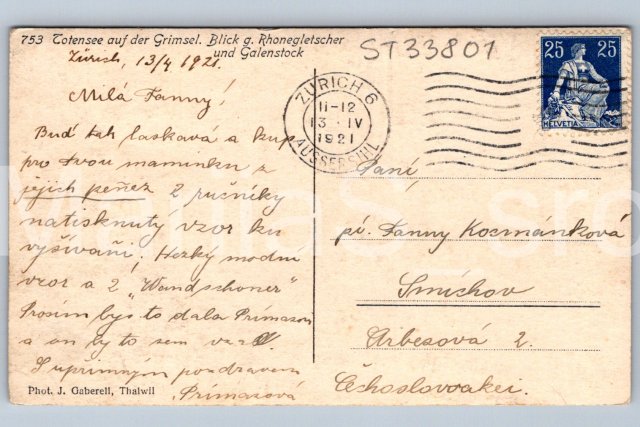 753 Totensee auf der Grimsel. Blick g. Rhonegletscher
und Galenstock
ST33801
Zürich, 13/4 1921.
Milá Fanny!
Buď tak laskavá a kup
pro Tvou maminku z
jejich peněz 2 ručníky
natisknutý vzor ku
vyšívání; Hezký modní
vzor a 2 "Wandschoner"
Prosím bys to dala Prímasovi
a on by to sem
S upřimným pozdravem
Prímasová
ZÜRICH 6
11-12
13. IV
1921
AUSSERSIHL
25 25
HELVETIA
Paní
pí. Fanny Kocmánková
Smíchov
Arbesová 2.
Čechoslovakei.
Phot. J. Gaberell, Thalwil